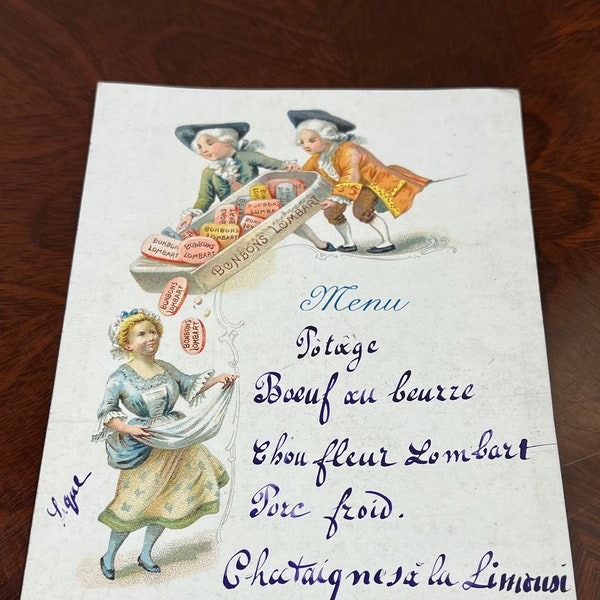 BONBONS LOMBART
BONBONS LOMBART
BONBONS LOMBART
BONBONS LOMBART
BONBONS LOMBART
BONBONS LOMBART
Menu
Potâge
Boeuf au beurre
Chou fleur Lombart
Porc froid.
Chataignes à la Limousi